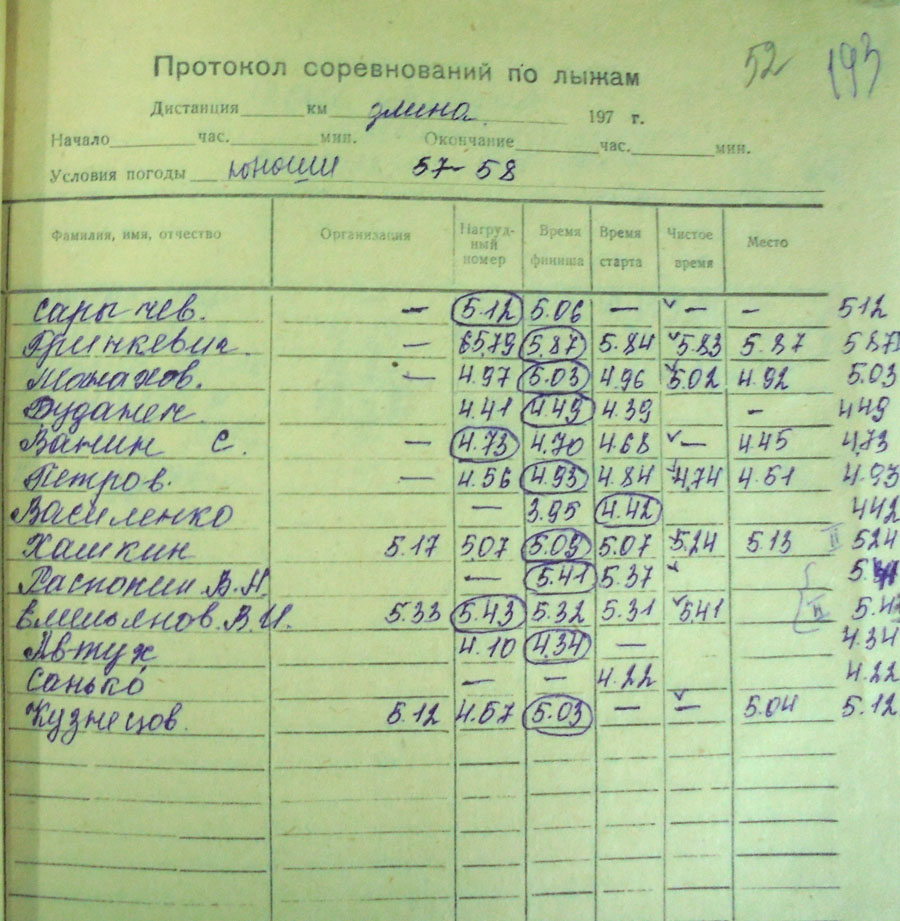 52 193
Протокол соревнований по лыжам
Дистанция км длина 197 г.
Начало час. мин. Окончание час. мин.
Условия погоды юноши 57-58
Фамилия, имя, отчество Организация Нагруд-ный номер Время финиша Время старта Чистое время Место
Сарычев. — 5.12 5.06 — ✓ — — 512
Гринкевич. — 5.79 5.87 5.84 ✓ 5.83 5.87 587
Монахов. — 4.97 5.03 4.96 ✓ 5.02 4.92 5.03
4.41 4.49 4.39 — 449
Ванин С. — 4.73 4.70 4.68 ✓ — 4.45 4.73
Петров. — 4.56 4.93 4.84 ✓ 4.74 4.61 4.93
Василенко — 3.95 4.42 442
Хашкин 5.17 507 5.09 5.07 ✓ 5.24 5.13 II 524
Распопин В.Н. — 5.41 5.37 ✓
Емельянов. В.И. 5.33 5.43 5.32 5.31 ✓ 541 5.4
Автух 4.10 4.34 — 4.34
Санько — — 4.22 4.22
Кузнецов. 5.12 4.57 5.03 — ✓ — 5.04 5.12